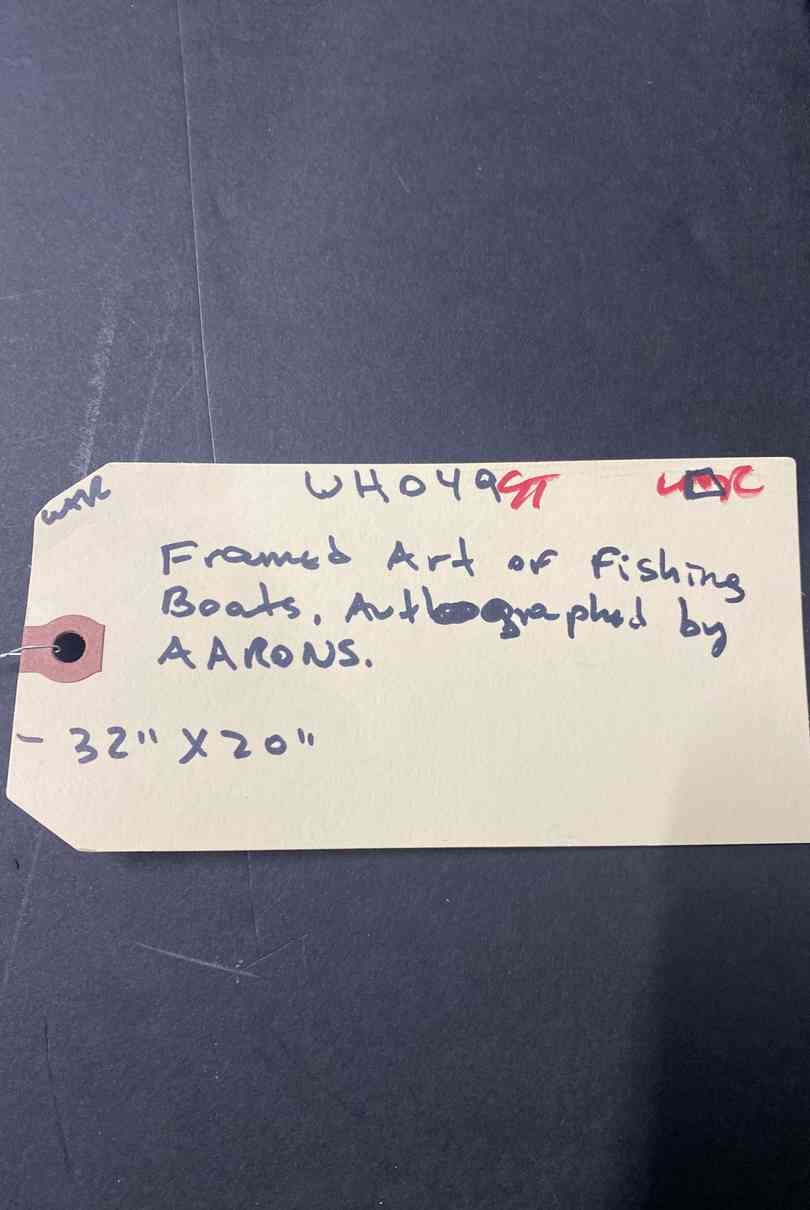 WH049 ST
Framed Art of Fishing
Boats, Autographed by
AARONS.
- 32" X 20"